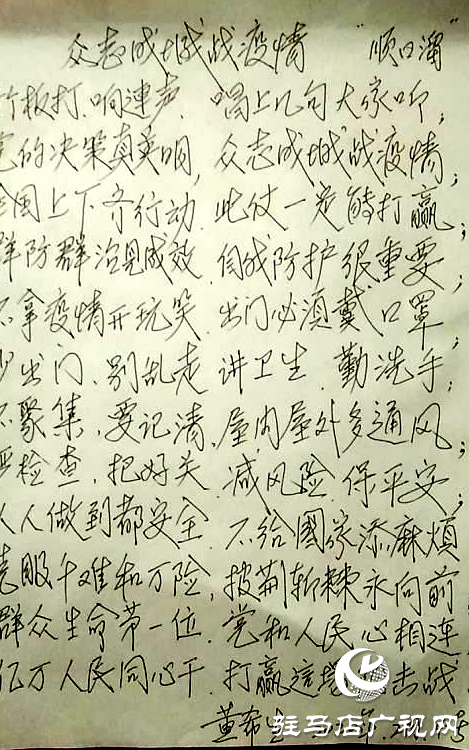 众志成城战疫情 “顺口溜”
竹板打.响連声. 唱上几句大家听;
的决策真英明, 众志成城战疫情;
全国上下齐行动. 此仗一定能打赢;
群防群治見成效. 自我防护很重要;
不拿疫情开玩笑. 出门必须戴口罩;
少出门、别乱走 讲卫生. 勤洗手;
不聚集, 要记清, 屋内屋外多通风;
严检查, 把好关. 减风险. 保平安;
人人做到都安全. 不给國家添麻煩
克服千难和万险, 披荆斩棘永向前
群众生命第一位. 党和人民心相连
亿万人民同心干. 打赢这击战
黄
驻马店广视网